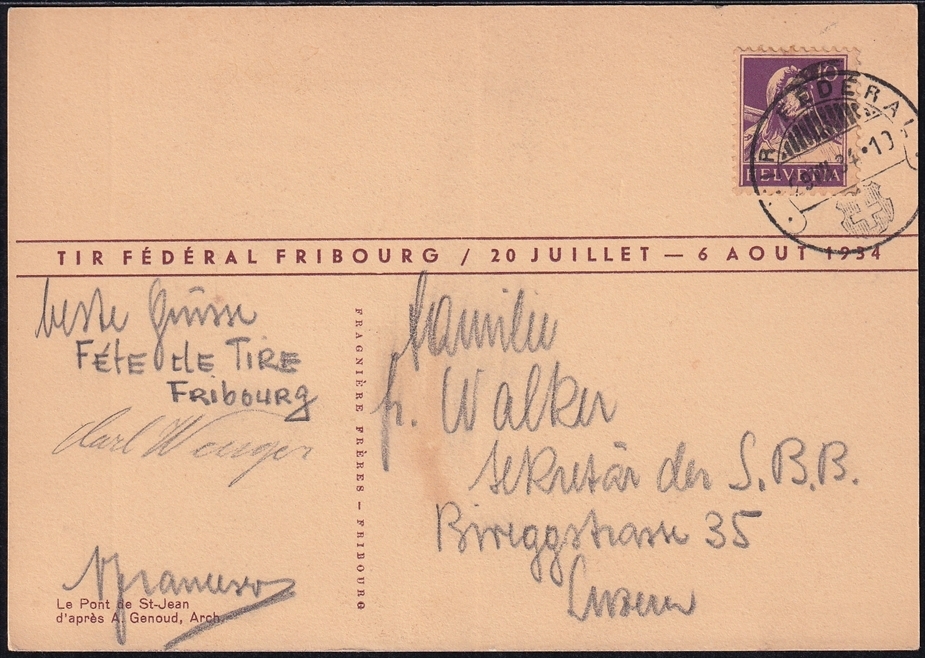 10
HELVETIA
R FÉDÉRAL
VII 34 • 10
TIR FÉDÉRAL FRIBOURG / 20 JUILLET — 6 AOUT 1934
beste Grüsse
FÉtE dE TIRE
FRibouRg
Carl Wenger
Le Pont de St-Jean
d'après A. Genoud, Arch.
FRAGNIÈRE FRÈRES – FRIBOURG
Familie
Walker
Sekretär der S.B.B.
Bireggstrasse 35
Luzern